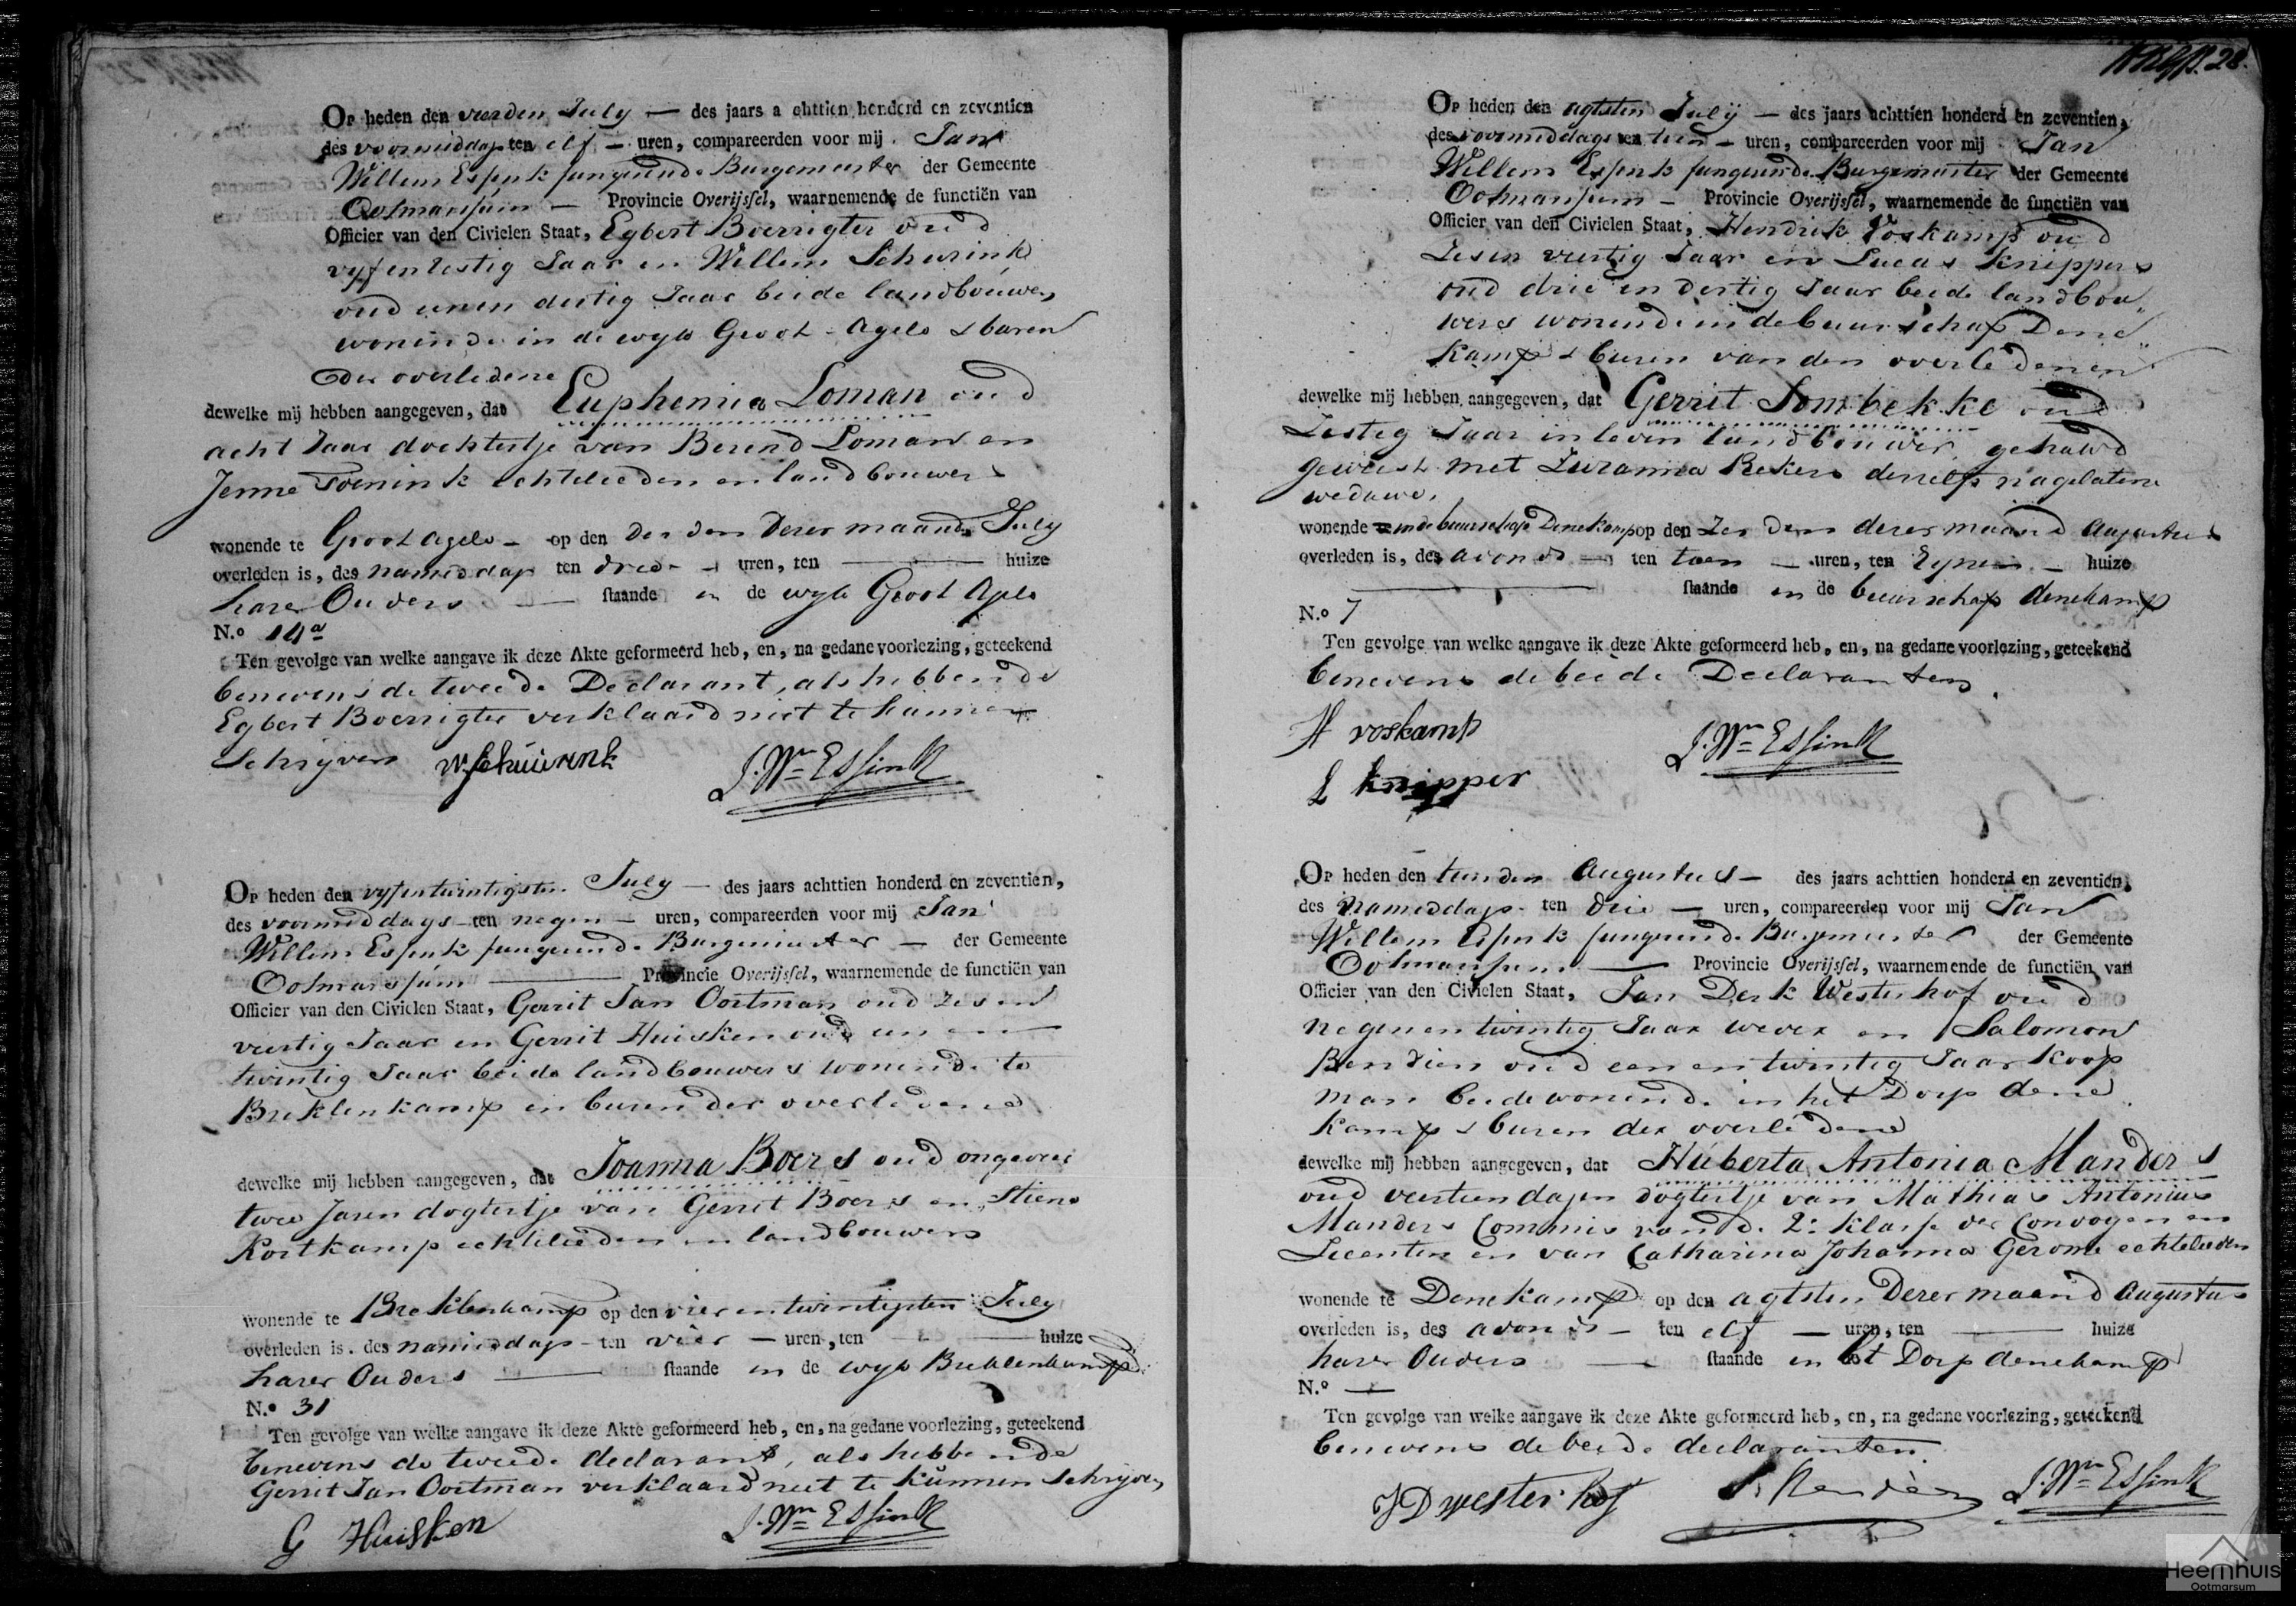 Op heden den vierden July — des jaars achttien honderd en zeventien
des voormiddags ten elf — uren, compareerden voor mij Jan
Willem Essink fungeerende Burgemeester der Gemeente
Ootmarssum — Provincie Overijssel, waarnemende de functiën van
Officier van den Civielen Staat, Egbert Boerrigter oud
vyfenzestig Jaar en Willem Scheurink
oud eenen dertig Jaar beide landbouwers
wonende in de wyk Groot-Agelo & buren
der overledene
dewelke mij hebben aangegeven, dat Euphemia Loman oud
acht Jaar dochtertje van Berend Loman en
Jenne Toenink echtelieden en landbouwers
wonende te Groot Agelo — op den derden dezer maand July
overleden is, des namiddags ten drie — uren, ten — huize
harer Ouders — staande in de wyk Groot Agelo
N.o 14a
Ten gevolge van welke aangave ik deze Akte geformeerd heb, en, na gedane voorlezing, geteekend
benevens de tweede Declarant, als hebbende
Egbert Boerrigter verklaard niet te kunnen
Schrijven W Scheúrink J. Wm Essink
Op heden den vyfentwintigsten July — des jaars achttien honderd en zeventien,
des voormiddags ten negen — uren, compareerden voor mij Jan
Willem Essink fungeerende Burgemeester — der Gemeente
Ootmarssum — Provincie Overijssel, waarnemende de functiën van
Officier van den Civielen Staat, Gerrit Jan Oortman oud zesen
veertig Jaar en Gerrit Huisken oud een en
twintig Jaar beide landbouwers wonende te
Breklenkamp en buren der overledene
dewelke mij hebben aangegeven, dat Joanna Boers oud ongeveer
twee Jaren dogtertje van Gerrit Boers en Stiene
Kortkamp echtelieden en landbouwers
wonende te Breklenkamp op den vier en twintigsten July
overleden is, des namiddags ten vier — uren, ten — huize
harer Ouders — staande in de wyk Breklenkamp
N.o 31
Ten gevolge van welke aangave ik deze Akte geformeerd heb, en, na gedane voorlezing, geteekend
benevens de tweede declarant, als hebbende
Gerrit Jan Oortman verklaard niet te kunnen schrijven
G Huisken J. Wm Essink
28.
Op heden den agtsten July — des jaars achttien honderd en zeventien,
des voormiddags ten tien — uren, compareerden voor mij Jan
Willem Essink fungeerende Burgemeester der Gemeente
Ootmarssum — Provincie Overijssel, waarnemende de functiën van
Officier van den Civielen Staat, Hendrik Voskamp oud
Zesen veertig Jaar en Lucas Knippers
oud drie en dertig Jaar beide landbou„
wers wonende in de buurschap Dene„
kamp & buren van den overledenen
dewelke mij hebben aangegeven, dat Gerrit Sombekke oud
Zestig Jaar in leven landbouwer gehuwd
geweest met Zuzanna Rekers deszelfs nagelatene
weduwe.
wonende in de buurschap Denekamp op den zesden dezer maand Augustus
overleden is, des avonds — ten tien — uren, ten Eynen — huize
— staande in de buurschap denekamp
N.o 7
Ten gevolge van welke aangave ik deze Akte geformeerd heb, en, na gedane voorlezing, geteekend
benevens de beide Declaranten.
H voskamp J. Wm Essink
L knipper
Op heden den tienden Augustus — des jaars achttien honderd en zeventien,
des Namiddags ten drie — uren, compareerden voor mij Jan
Willem Essink fungeerende Burgemeester der Gemeente
Ootmarssum — Provincie Overijssel, waarnemende de functiën van
Officier van den Civielen Staat, Jan Derk Westerhof oud
negenentwintig Jaar wever en Salomon
Bendien oud een en twintig Jaar Koop
man beide wonende in het Dorp dene
kamp & buren der overledene
dewelke mij hebben aangegeven, dat Huberta Antonia Manders
oud veertien dagen dogtertje van Mathias Antonius
Manders Commies van de 2e klasse der Convoyen en
Licenten en van Catharina Johanna Gerome echtelieden
wonende te Denekamp op den agtsten Dezer maand Augustus
overleden is, des avonds — ten elf — uren, ten — huize
harer Ouders — staande in het Dorp denekamp
N.o —
Ten gevolge van welke aangave ik deze Akte geformeerd heb, en, na gedane voorlezing, geteekend
benevens de beide declaranten.
J D Westerhof S. Bendien J. Wm Essink
Heemhuis
Ootmarsum